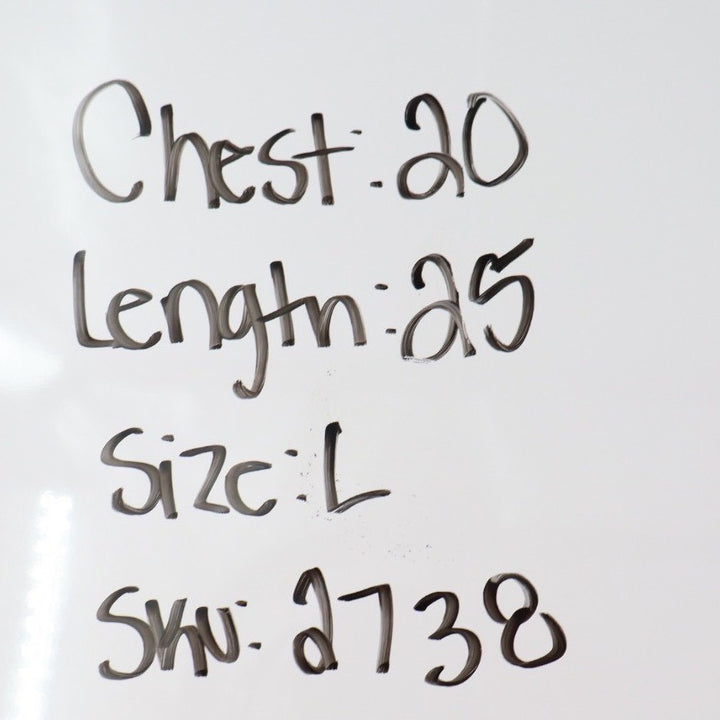 Chest: 20
Length: 25
Size: L
Sku: 2738